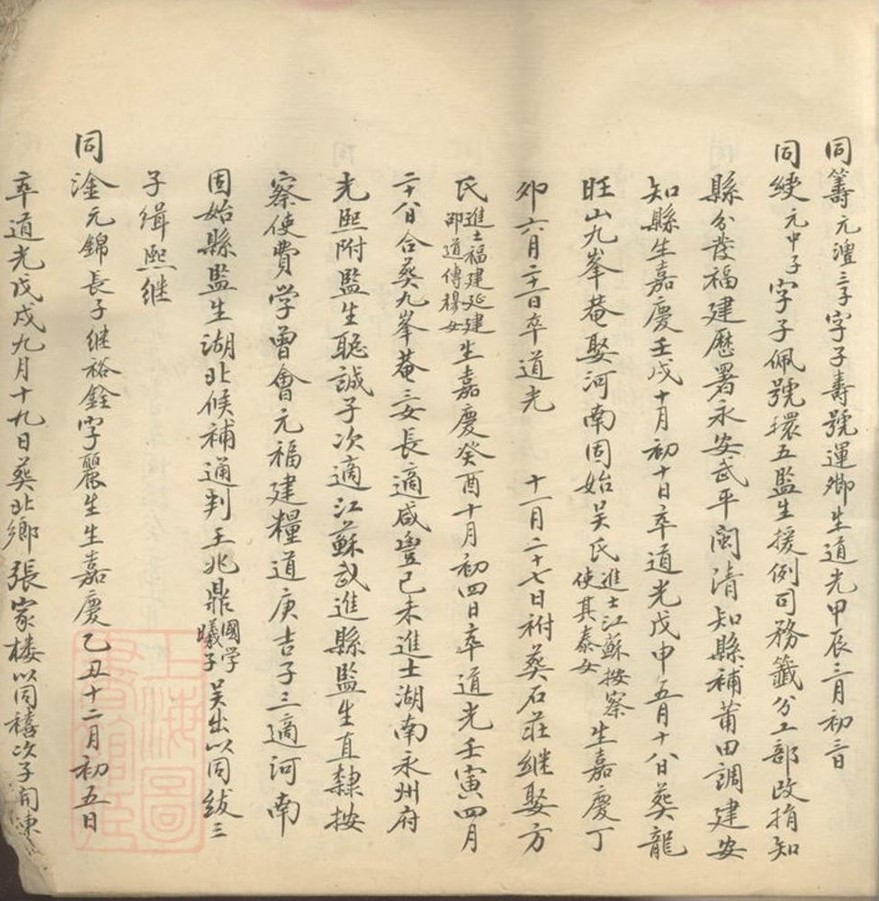 同籌元澧三子字子壽號運卿生道光甲辰三月初三日
同綬元中子字子佩號環五監生援例司務籤分工部改捐知
縣分發福建歷署永安武平閩清知縣補莆田調建安
知縣生嘉慶壬戌十月初十日卒道光戊申五月十八日葬龍
旺山九峯菴娶河南固始吳氏進士江蘇按察使其泰女生嘉慶丁
卯六月二十一日卒道光 十一月二十七日祔葬石莊继娶方
氏進士福建延建邵道傳穆女生嘉慶癸酉十月初四日卒道光壬寅四月
二十八日合葬九峯菴三女長適咸豐己未進士湖南永州府
光熙附監生聡誠子次適江蘇武進縣監生直隸按
察使費学曾會元福建糧道庚吉子三適河南
固始縣監生湖北候補通判王兆鼎國学曦子吳出以同紱三
子緝熙继
同淦元錦長子继裕銓字麗生生嘉慶乙丑十二月初五日
卒道光戊戌九月十九日葬北鄉張家楼以同禧次子開涑
上海圖書館藏